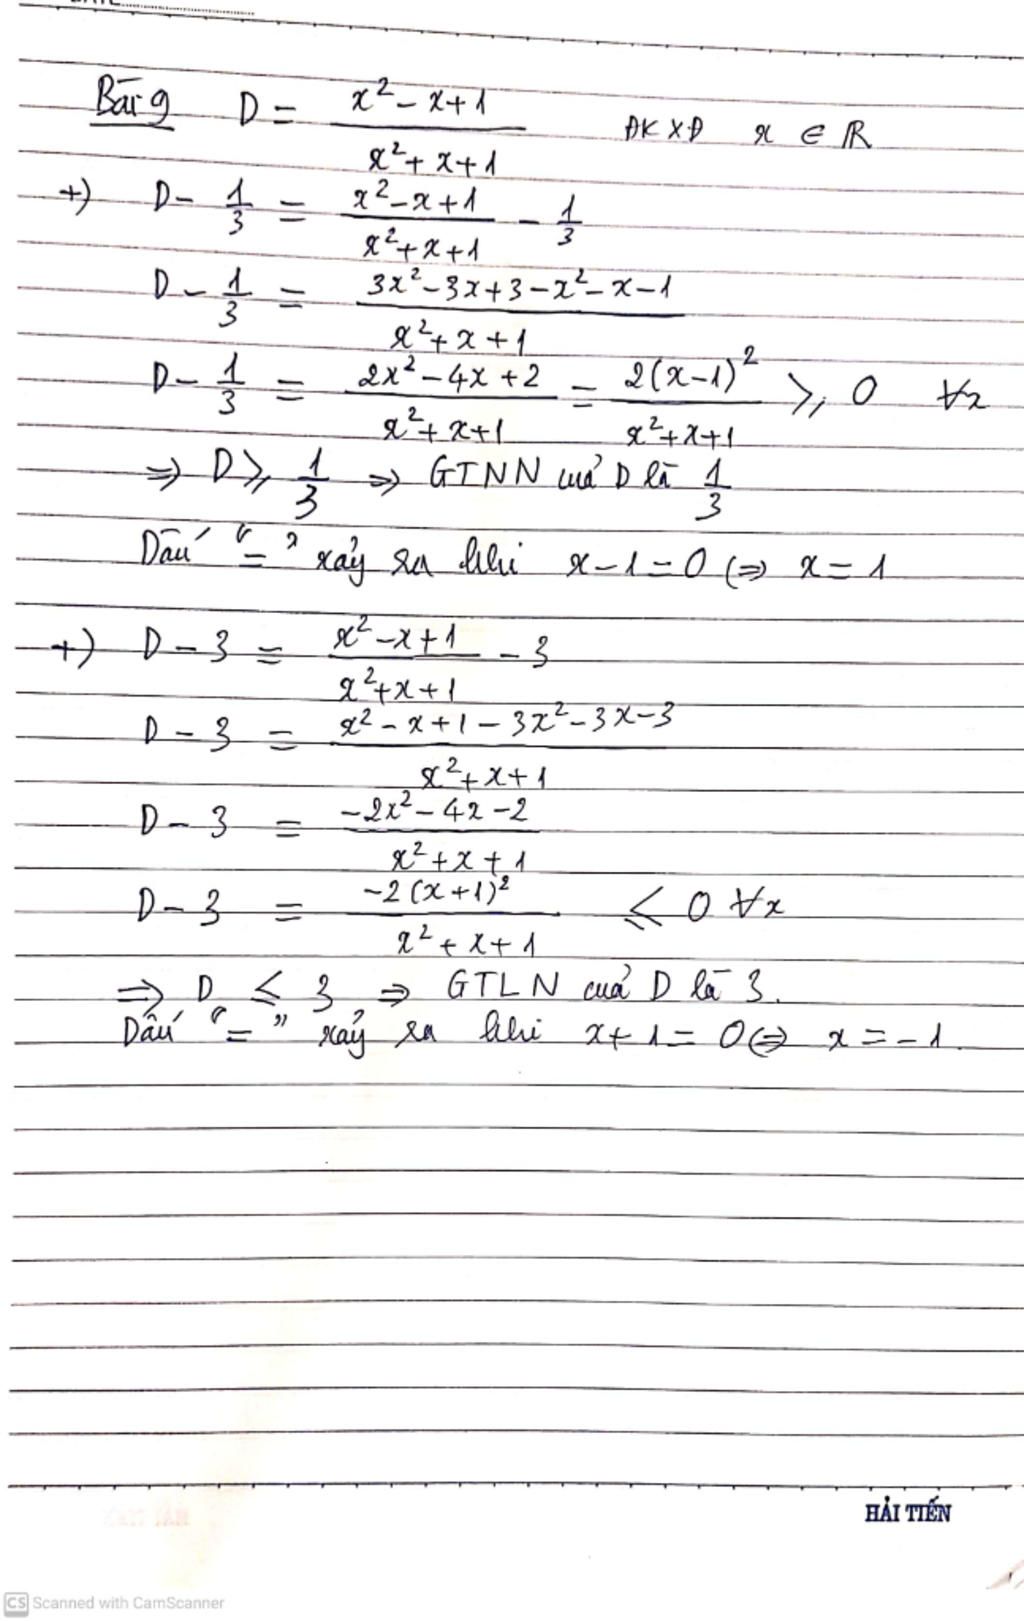 Bài 9 D = (x² - x + 1)/(x² + x + 1) ĐKXĐ x ∈ ℝ
+) D - 1/3 = (x² - x + 1)/(x² + x + 1) - 1/3
D - 1/3 = (3x² - 3x + 3 - x² - x - 1)/(x² + x + 1)
D - 1/3 = (2x² - 4x + 2)/(x² + x + 1) = 2(x - 1)²/(x² + x + 1) ⩾ 0 ∀x
⇒ D ⩾ 1/3 ⇒ GTNN của D là 1/3
Dấu "=" xảy ra khi x - 1 = 0 ⇔ x = 1
+) D - 3 = (x² - x + 1)/(x² + x + 1) - 3
D - 3 = (x² - x + 1 - 3x² - 3x - 3)/(x² + x + 1)
D - 3 = (-2x² - 4x - 2)/(x² + x + 1)
D - 3 = -2(x + 1)²/(x² + x + 1) ⩽ 0 ∀x
⇒ D ⩽ 3 ⇒ GTLN của D là 3.
Dấu "=" xảy ra khi x + 1 = 0 ⇔ x = -1.
HẢI TIẾN
CS Scanned with CamScanner